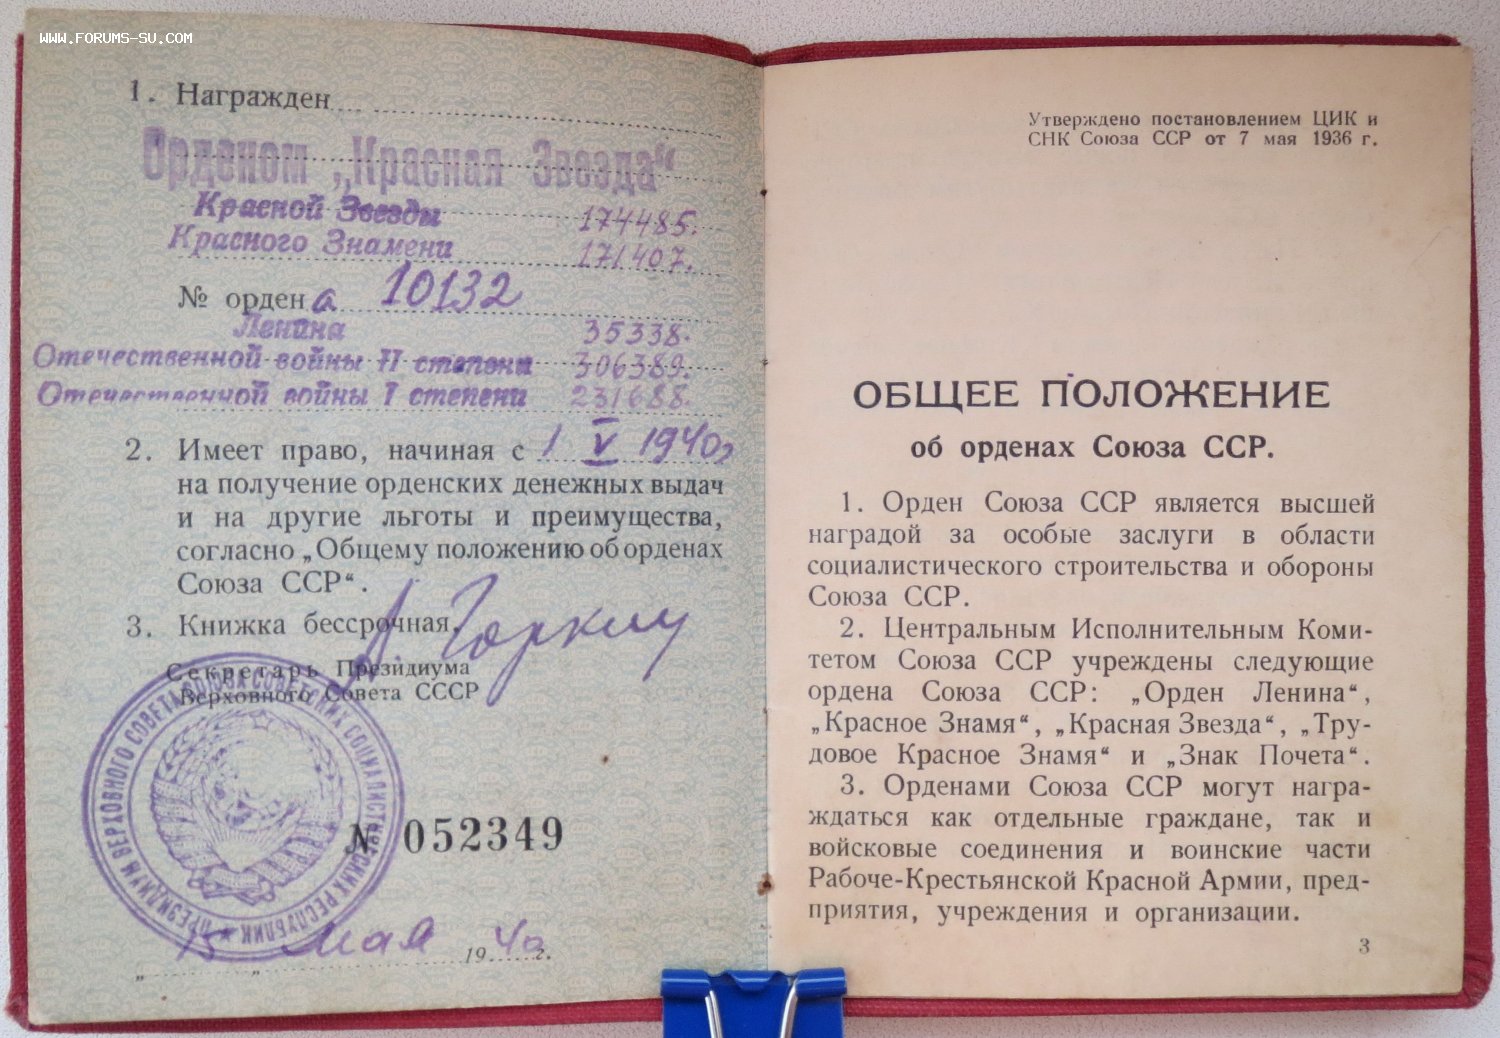 WWW.FORUMS-SU.COM
1. Награжден
Орденом „Красная Звезда“
Красной Звезды 174485.
Красного Знамени 171407.
№ ордена 10132
Ленина 35338.
Отечественной войны II степени 306389.
Отечественной войны I степени 231688.
2. Имеет право, начиная с 1 V 1940г
на получение орденских денежных выдач
и на другие льготы и преимущества,
согласно „Общему положению об орденах
Союза ССР“.
3. Книжка бессрочная.
А. Горкин
Секретарь Президиума
Верховного Совета СССР
ПРЕЗИДИУМ ВЕРХОВНОГО СОВЕТА СОЮЗА СОВЕТСКИХ СОЦИАЛИСТИЧЕСКИХ РЕСПУБЛИК
№ 052349
„ 15 “ мая 1940 г.
Утверждено постановлением ЦИК и
СНК Союза ССР от 7 мая 1936 г.
ОБЩЕЕ ПОЛОЖЕНИЕ
об орденах Союза ССР.
1. Орден Союза ССР является высшей
наградой за особые заслуги в области
социалистического строительства и обороны
Союза ССР.
2. Центральным Исполнительным Коми-
тетом Союза ССР учреждены следующие
ордена Союза ССР: „Орден Ленина“,
„Красное Знамя“, „Красная Звезда“, „Тру-
довое Красное Знамя“ и „Знак Почета“.
3. Орденами Союза ССР могут награ-
ждаться как отдельные граждане, так и
войсковые соединения и воинские части
Рабоче-Крестьянской Красной Армии, пред-
приятия, учреждения и организации.
3